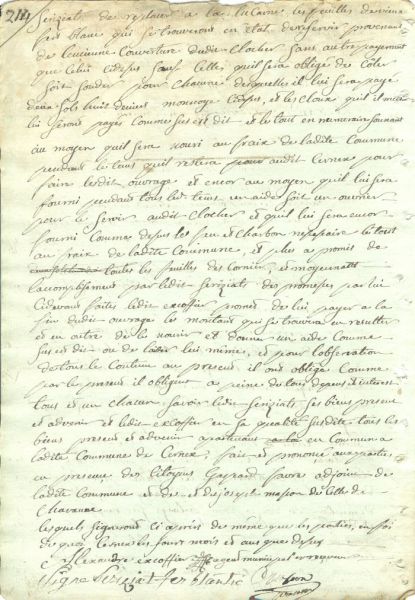 211
Sengiat de replacer a la lucarne les feuilles de vieux
fert blanc qui se trouveront en etat de reservir provenant
de lancienne couverture dudit clocher sans autre payement
que celui cidessus sauf celle qu'il sera obligé de
soit souder pour chacune desquelles il lui sera payé
deux sols huit deniers monoyage cidessus, et les cloux qu'il mettra
lui seront payés comme sus est dit et le tout en numeraire sonnant
au moyen qu'il sera nouri au fraix de ladite Commune
pendant le tems qu'il restera pour audit Cernex pour
faire lesdit ouvrage et encor au moyen qu'il lui sera
fourni pendant tous les tems un aide soit un ouvrier
pour le servir audit clocher et qu'il lui sera encor
fourni comme dessus les feu et charbon nessessaire le tout
au fraix de ladite Commune, et plus a promis de
toutes les feuilles des cornier, et moyennant
laccomplisement par ledit Sengiat des promesses par lui
cidevant faites ledit excoffier promet de lui payer a la
fin dudit ouvrage le montant qui se trouvera en resulter
et en outre de le nourir et donner un aide comme
sus est dit ou de laider lui même, et pour lobservation
de tout le contenu au present, il ont obligé comme
par le present il obligent a peine de tous dépens et interest
tous et un chacun savoir ledit Sengiat ses biens present
et advenir et ledit excoffier en sa qualité susdite tous les
biens present et advenir apartenant en commun a
ladite Commune de Cernex, fait et prononcé aux parties
en presence des Citoyens Gaspard favre adjoint de
ladite Commune et de masson du Ville de
Chavanne
lesquels signeront ci après de même que les parties, en foi
de quoi les jour mois et an que dessus
Alexandre excoffier agent municipal
Signe Sengiat ferblantié